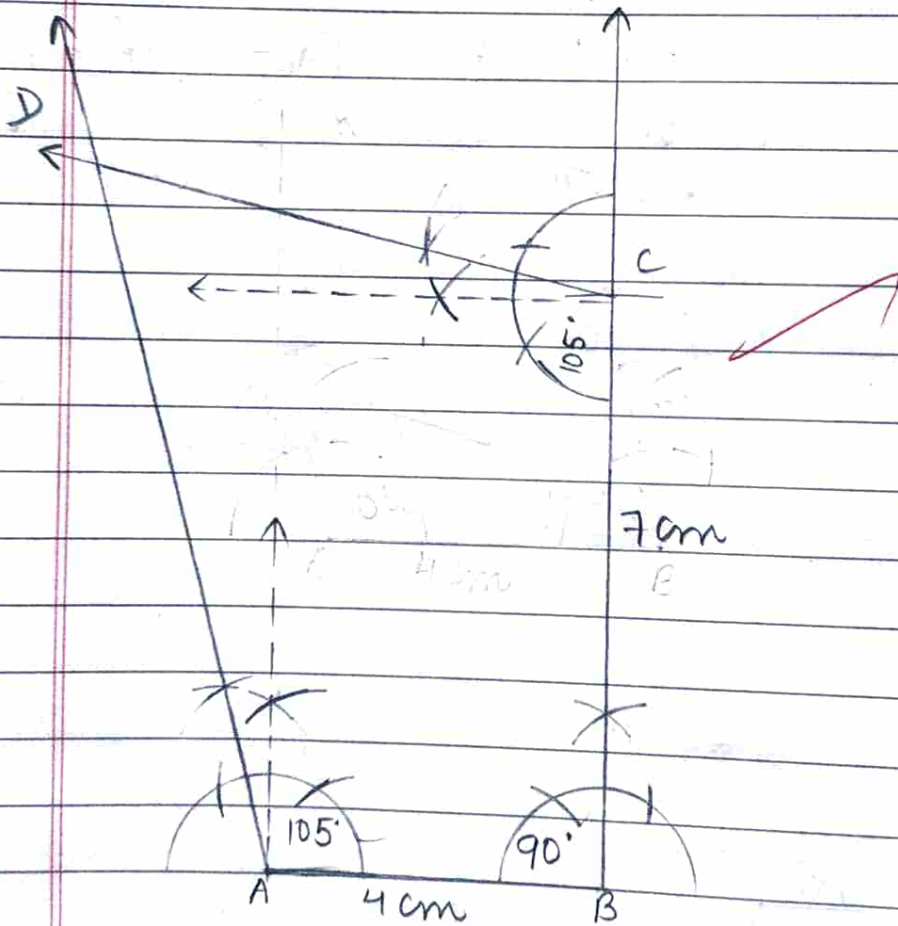 D
C
105°
7cm
4cm
B
105°
90°
A
4cm
B